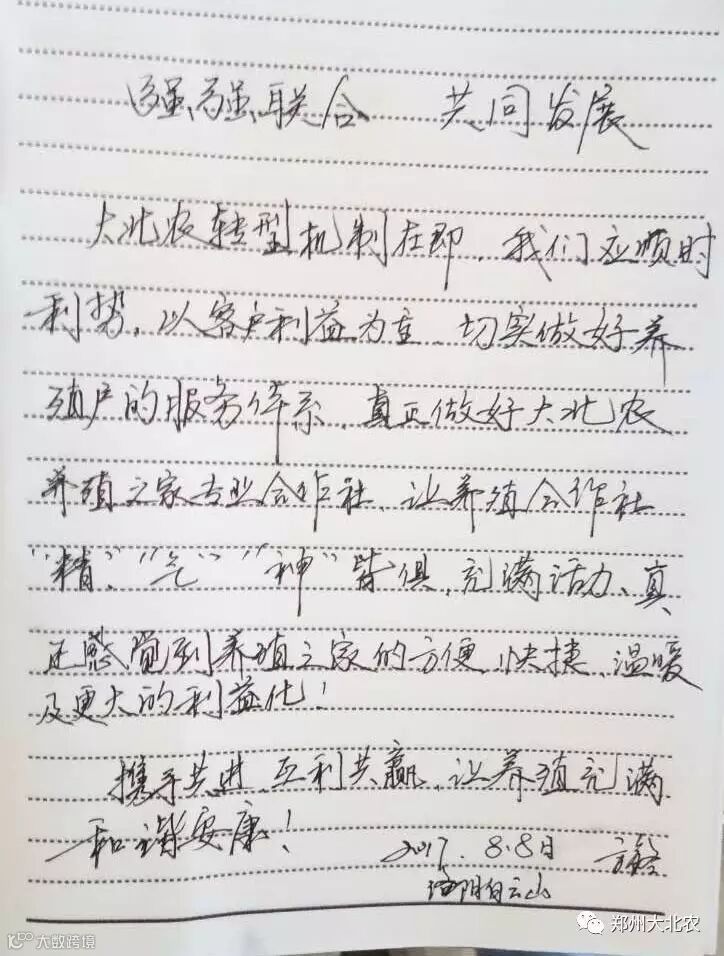 强强联合 共同发展
大北农转型机制在即，我们应顺时
利势，以客户利益为重、切实做好养
殖户的服务体系、真正做好大北农
养殖之家专业合作社、让养殖合作社
"精"、"气""神"皆俱，充满活力、真
正感觉到养殖之家的方便、快捷、温暖
及更大的利益化！
携手共进、互利共赢，让养殖充满
和谐安康！
2017.8.8日
洛阳白云山
郑州大北农
大数跨境